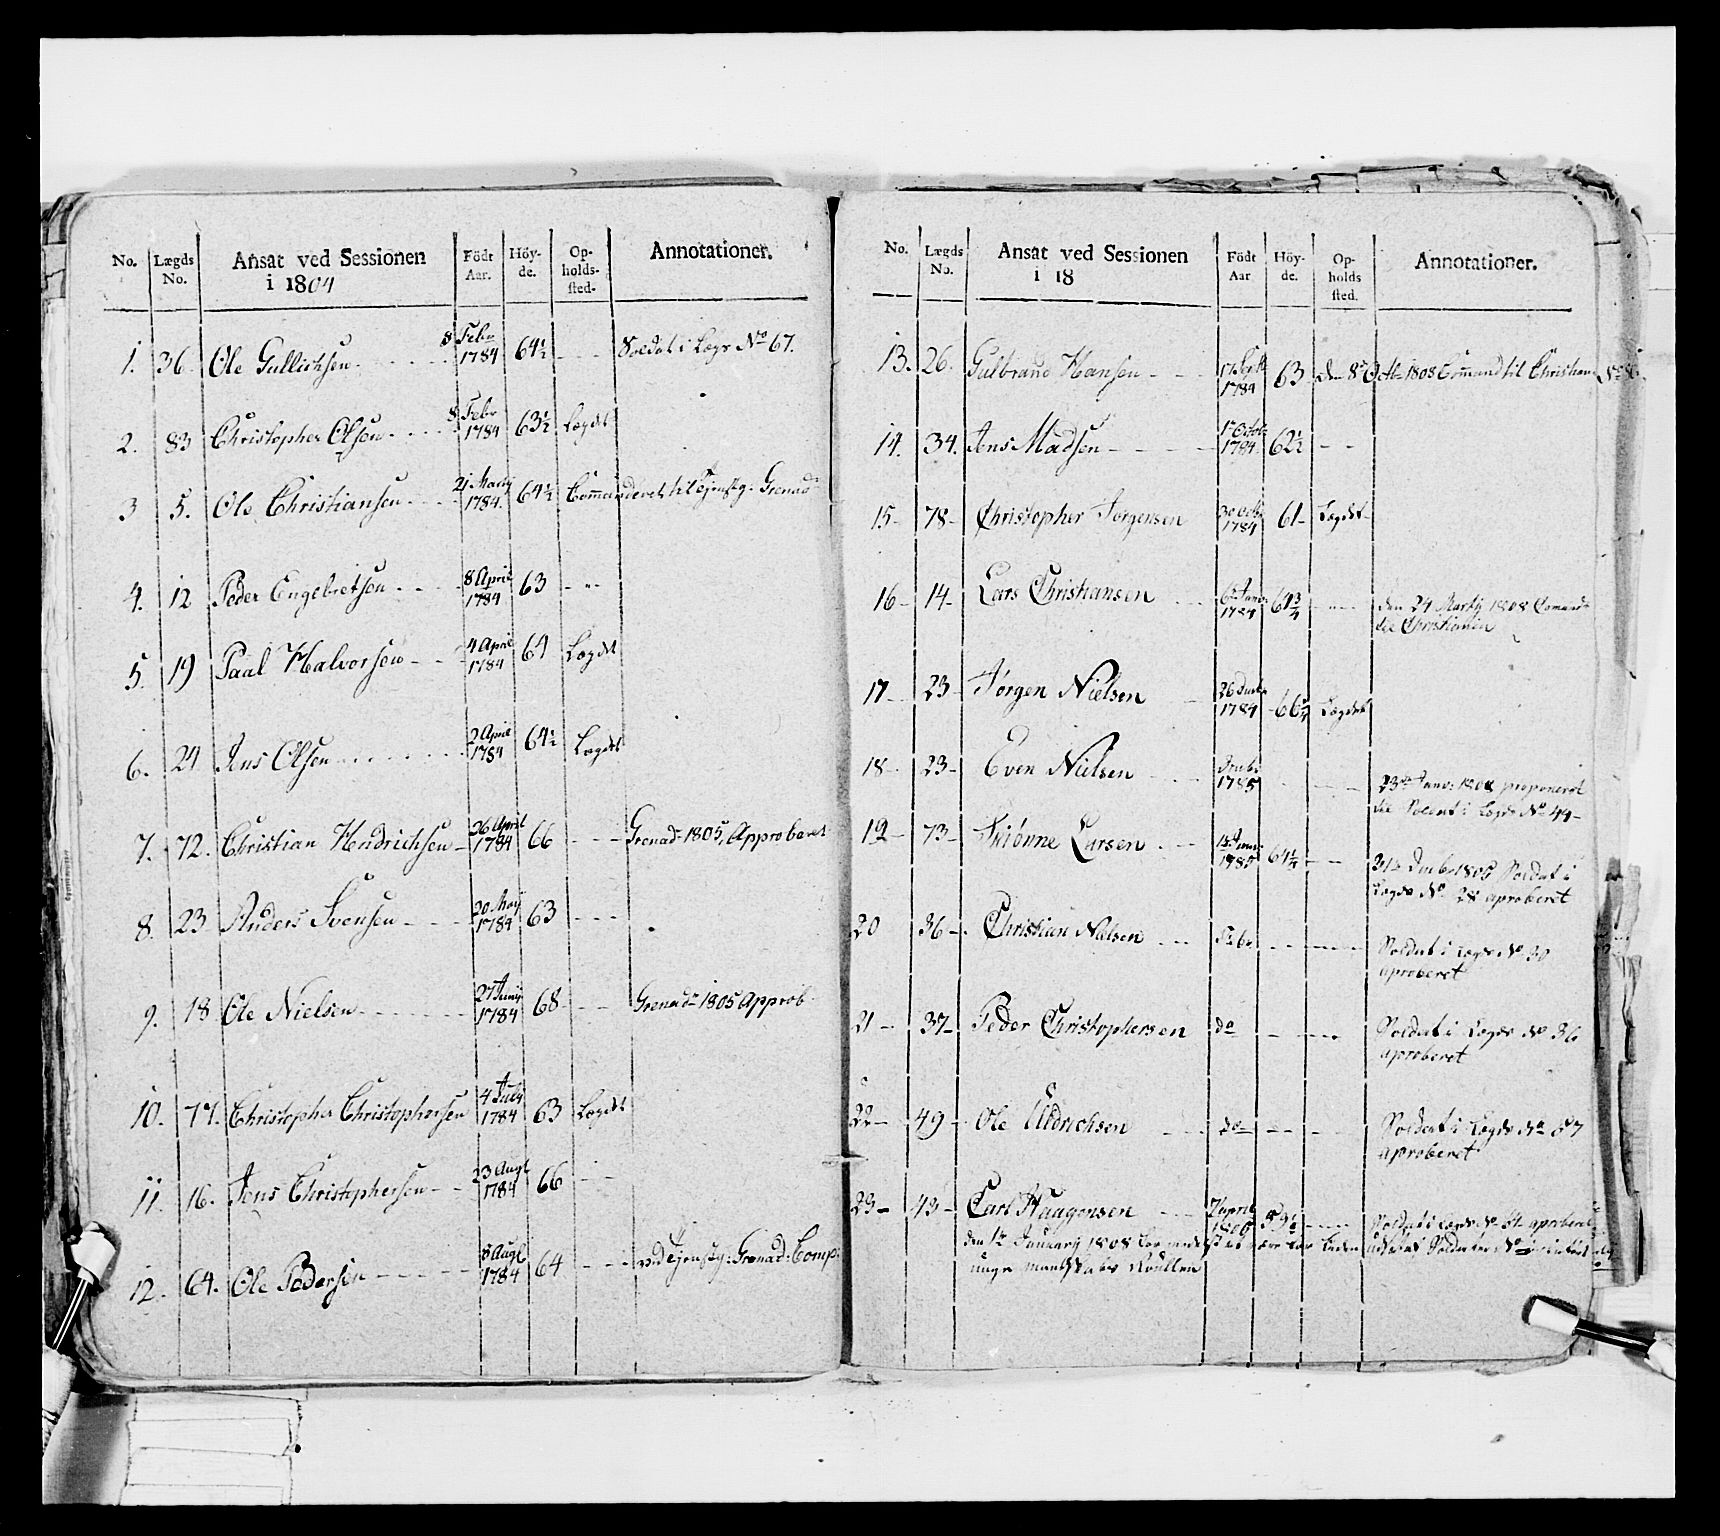 No. Lægds No. Ansat ved Sessionen i 1804 Födt Aar. Höy-de. Op-holds-sted. Annotationer.
1. 36 Ole Gullichsen 8 Febr 1784 64½ Soldat i Lægd No 67.
2. 83 Christopher Olsen 8 Febr 1784 63½ Lægdet
3 5. Ole Christiansen 1784 64½ Commanderet til Grenad
4. 12 Peder Engebretsen 8 April 1784 63
5. 19 Paal Halvorsen 4 April 1784 64 Lægdet
6. 24 Jens Olsen 2 April 1784 64½ Lægdet
7. 72. Christian Hendrichsen 26 April 1784 66 Grenadr 1805, Approberet
8. 23 Anders Svensen 20 May 1784 63
9. 18 Ole Nielsen 27 Junij 1784 68 Grenadr 1805 Approb
10. 77. Christopher Christophersen 4 July 1784 63 Lægdet
11. 16. Jens Christophersen 23 Augt 1784 66
12. 64. Ole Pedersen 8 Augt 1784 64 Grenad: Comp:
No. Lægds No. Ansat ved Sessionen i 18 Födt Aar Höy-de. Op-holds sted. Annotationer.
13. 26. Gulbrand Hansen 1784 63 8 Octbr 1808 Command til Christian
14. 34. Jens Madsen 1 Octob 1784 62½
15 78 Christopher Jørgensen 30 Octb 1784 61 Lægdet
16 14 Lars Christiansen 1784 61¾ den 24 Martij 1808 Comandt
til Christiania
17 23 Jørgen Nielsen 26 1784 66¼ Lægdet
18 23 Even Nielsen 1785 23de Janv: 1808 proponeret
til Soldat i Lægd No 44
19 73 Larsen 1785 64¼ Decbr 1805 Soldat i
Lægd No 28 aproberet
20 36 Christian Nielsen Febr Soldat i Lægd No 30
aproberet
21 37 Peder Christophersen do Soldat i Lægd No 36
aproberet
22 49 Ole Uldrichsen do Soldat i Lægd No 57
aproberet
23 43 Carl Haagensen 7 April 1800 59½ Soldat i Lægd No aproberet
den 1te January 1808
unge mandskabs Rullen